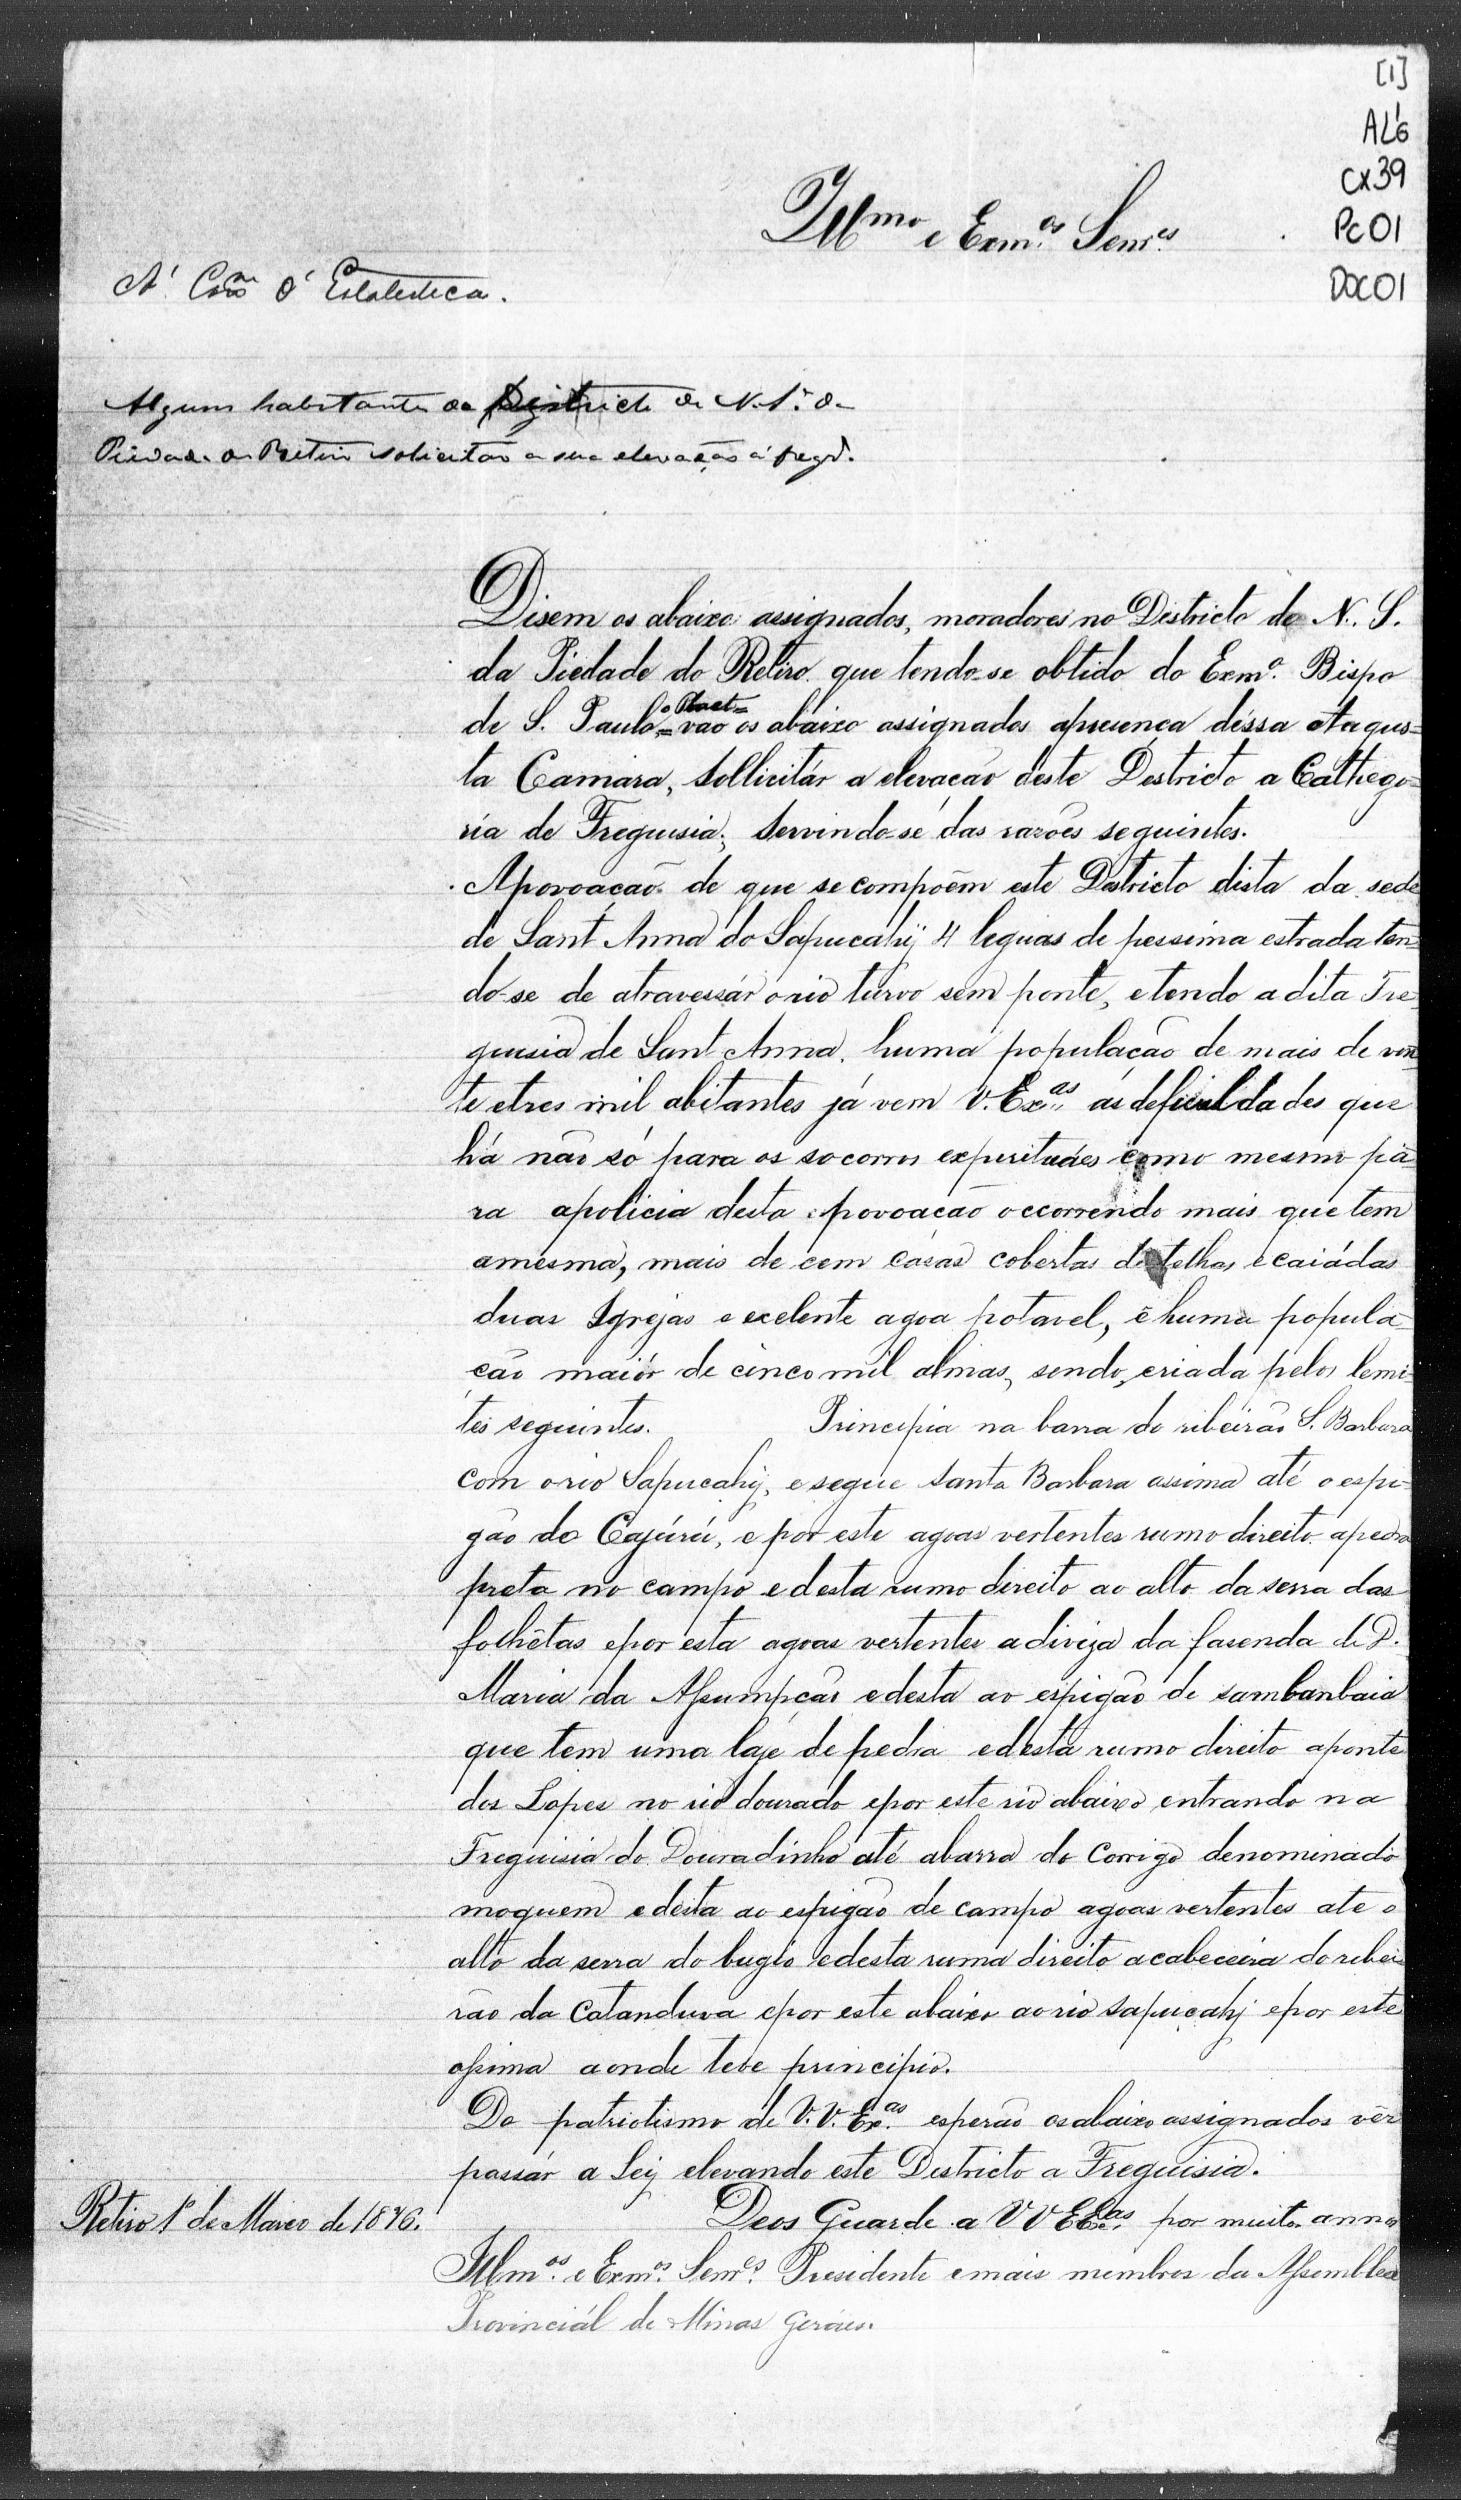 [1]
AL6
CX39
Pc01
DOC01
Illmos e Exm.os Senr.es
A' Com.m d' Estatestica.
Alguns habitantes do Districto de N. S.ª da
Piedade do Retiro solicitão a sua elevação á freg.ª.
Disem os abaixo assignados, moradores no Districto de N. S.
da Piedade do Retiro que tendo-se obtido do Exm.º Bispo
de S. Paulo = o Placet = vão os abaixo assignados apresença dessa Augus=
ta Camara, Sollicitár a elevação deste Destricto a Cathego=
ria de Freguisia; Servindo-se das razões seguintes.
Apovoação de que se compoêm este Destricto dista da sede
de Sant Anna do Sapucahÿ 4 leguas de pessima estrada ten=
do-se de atravessár o rio turvo sem ponte, e tendo a dita Fre=
guisia de Sant Anna, huma população de mais de vin=
te e tres mil abitantes já vem V. Ex.as as deficuldades que
há não só para os socorros expirituáes como mesmo pá
ra apolicia desta povoação occorrendo mais que tem
amesma, mais de cem cásas cobertas de telhas, e caiádas
duas Igrejas e excelente agoa potavel, é huma popula=
ção maiór de cinco mil almas, sendo, criada pelos lemi=
tes seguintes. Principia na barra do ribeirão S. Barbara
com o rio Sapucahÿ, e segue Santa Barbara assima até o espi=
gão do Cajúrú, e por este agoas vertentes rumo direito apedra
preta no campo e desta rumo direito ao alto da serra das
folhêtas epor esta agoas vertentes a diviza da fasenda de D.
Maria da Assumpção edesta ao espigão de sambanbaia
que tem uma laje de pedra edesta rumo direito aponte
dos Lopes no rio dourado epor este rio abaixo entrando na
Freguisia do Douradinho até abarra do Corrigo denominado
moquem edesta ao espigão de campo agoas vertentes ate o
alto da serra do bugio edesta rumo direito acabeceira do ribei=
rão da Catanduva epor este abaixo ao rio Sapucahÿ epor este
assima aonde teve principio.
Do patriotismo de V. V. Ex.as esperão osabaixo assignados vêr
passár a Leÿ elevando este Destricto a Freguisia.
Deos Guarde a V V E Ex.as por muitos annos
Retiro 1º de Março de 1876.
Illm.os e Exm.os Senr.es Presidente e mais membros da Assemblea
Provinciál de Minas Geráes.